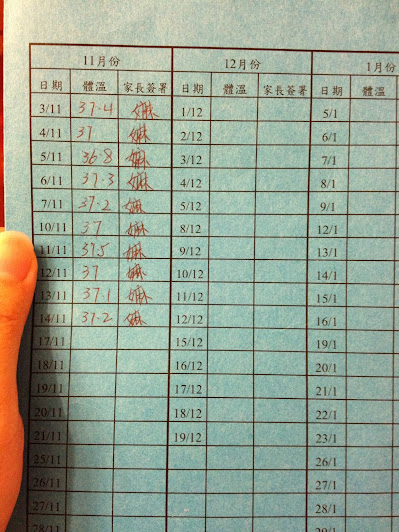 11月份 12月份 1月份
日期 體溫 家長簽署 日期 體溫 家長簽署 日期 體溫
3/11 37.4 嫲 1/12 5/1
4/11 37 嫲 2/12 6/1
5/11 36.8 嫲 3/12 7/1
6/11 37.3 嫲 4/12 8/1
7/11 37.2 嫲 5/12 9/1
10/11 37 嫲 8/12 12/1
11/11 37.5 嫲 9/12 13/1
12/11 37 嫲 10/12 14/1
13/11 37.1 嫲 11/12 15/1
14/11 37.2 嫲 12/12 16/1
17/11 15/12 19/1
18/11 16/12 20/1
19/11 17/12 21/1
20/11 18/12 22/1
21/11 19/12 23/1
25/11 26/1
26/11 27/1
27/11 28/1
28/11 29/1